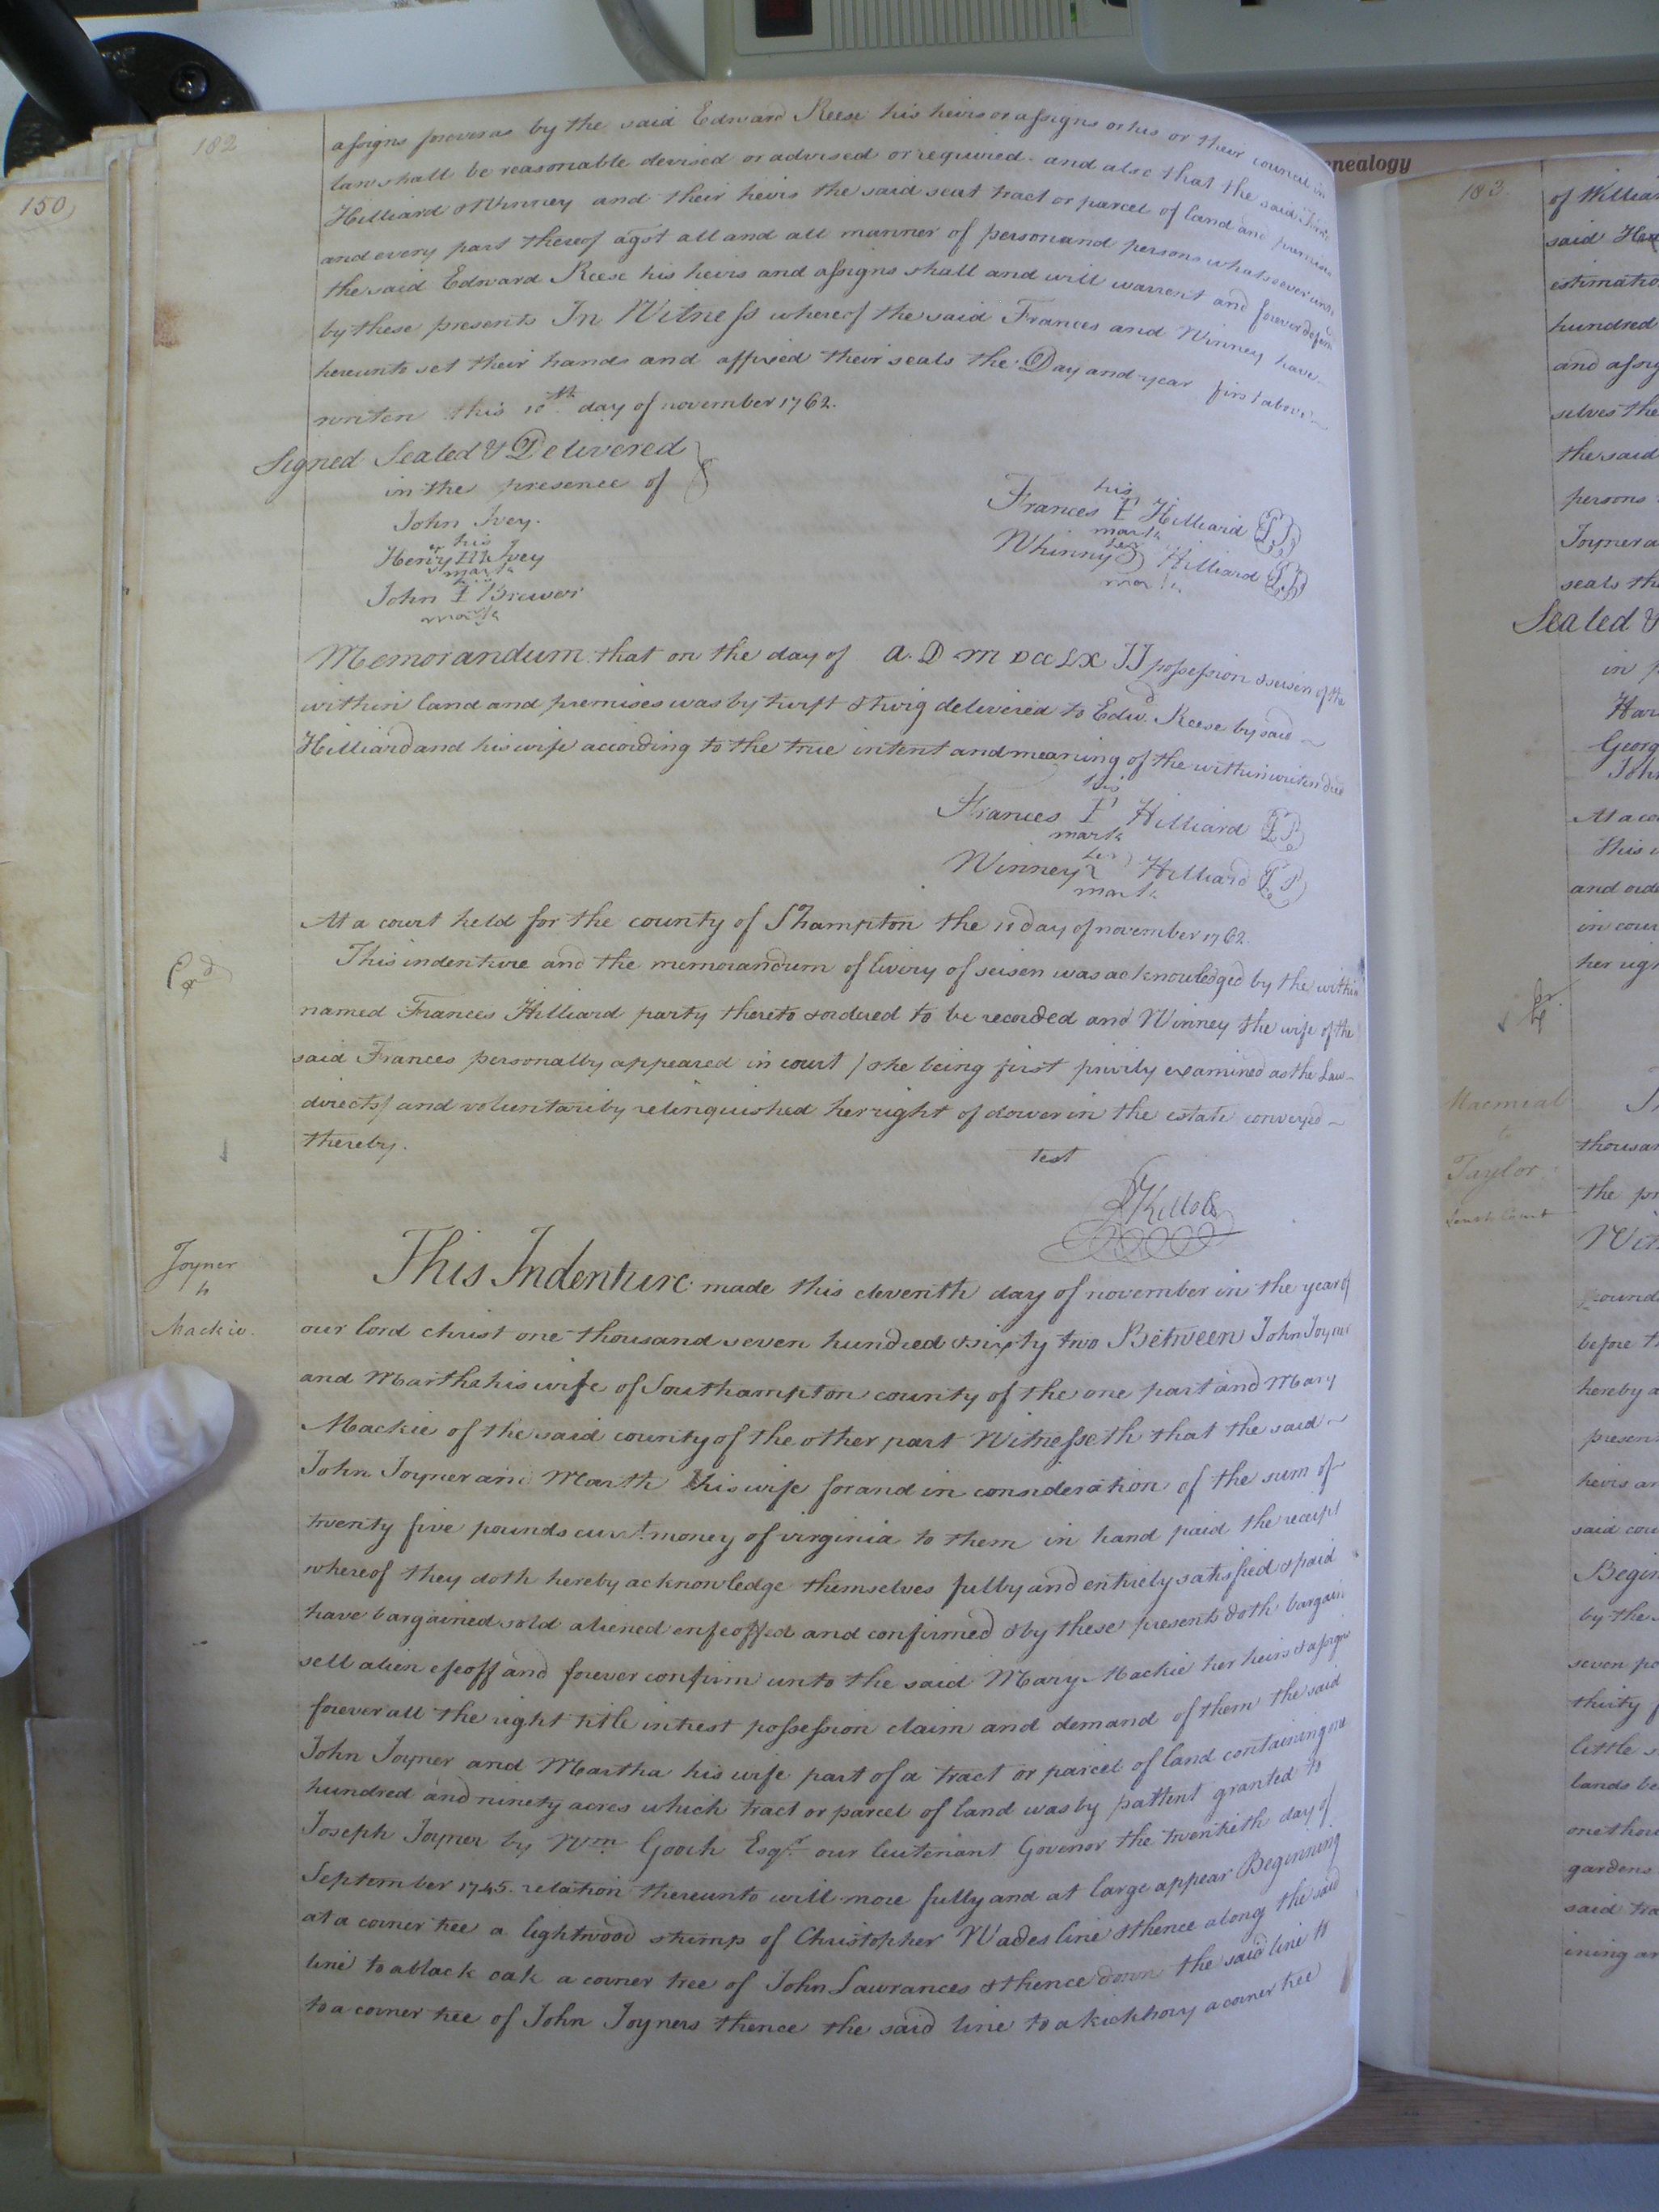 182
assigns forever as by the said Edward Reese his heirs or assigns or his or their council in
law shall be reasonable devised or advised or required. and also that the said
Hilliard & Whinney and their heirs the said seat tract or parcel of land and premises
and every part thereof agst all and all manner of person and persons whatsoever unto
the said Edward Reese his heirs and assigns shall and will warrent and forever defend
by these presents In Witness whereof the said Frances and Winney have
hereunto set their hands and affixed their seals the Day and year first above
writen this 10th day of november 1762.
Signed Sealed & Delivered
in the presence of
John Ivey.
his
Henry H Ivey
mark
his
John I Brewer
mark
his
Frances F Hilliard
mark
her
Whinny Hilliard
mark
Memorandum that on the day of A. D M DCCLXII possession & seisen of the
within land and premises was by turft & twig delivered to Edwd. Reese by said
Hilliard and his wife according to the true intent and meaning of the within writen deed
his
Frances F Hilliard
mark
her
Winney Hilliard
mark
At a court held for the county of Shampton the 11 day of november 1762.
This indenture and the memorandum of livery of seisen was acknowledged by the within
named Frances Hilliard party thereto & ordered to be recorded and Winney the wife of the
said Frances personally appeared in court / she being first privily examined as the Law
directs / and voluntariby relinquished her right of dower in the estate conveyed
thereby.
test
Joyner
to
Mackie.
This Indenture made this eleventh day of november in the year of
our lord christ one thousand seven hundred & sixty two Between John Joyner
and Martha his wife of Southampton county of the one part and Mary
Mackie of the said county of the other part Witnesseth that the said
John Joyner and Marth his wife for and in consideration of the sum of
twenty five pounds curt. money of virginia to them in hand paid the receipt
whereof they doth hereby acknowledge themselves fulby and entirely satisfied & paid
have bargained sold aliened enfeoffed and confirmed & by these presents doth bargain
sell alien efeoff and forever confirm unto the said Mary Mackie her heirs & assigns
forever all the right title intrest possession claim and demand of them the said
John Joyner and Martha his wife part of a tract or parcel of land containing one
hundred and ninety acres which tract or parcel of land was by pattent granted to
Joseph Joyner by Wm. Gooch Esqr. our leutenant Govenor the twentieth day of
September 1745. relation thereunto will more fully and at large appear Beginning
at a corner tree a lightwood stump of Christopher Wades line & thence along the said
line to a black oak a corner tree of John Lawrances & thence down the said line to
to a corner tree of John Joyners thence the said line to a kickhory a corner tree
150
nealogy
183
of William
said
estimatio
hundred
and assig
selves the
the said
persons
Joyner a
seals the
Sealed &
in p
Har
Georg
John
At a co
This
and orde
in cour
her righ
Macmial
to
Taylor
thousan
the pr
Wit
pound
before th
hereby a
presen
heirs an
said cou
Begin
by the
seven po
thirty f
little
lands be
one thou
gardens
said tra
ining an